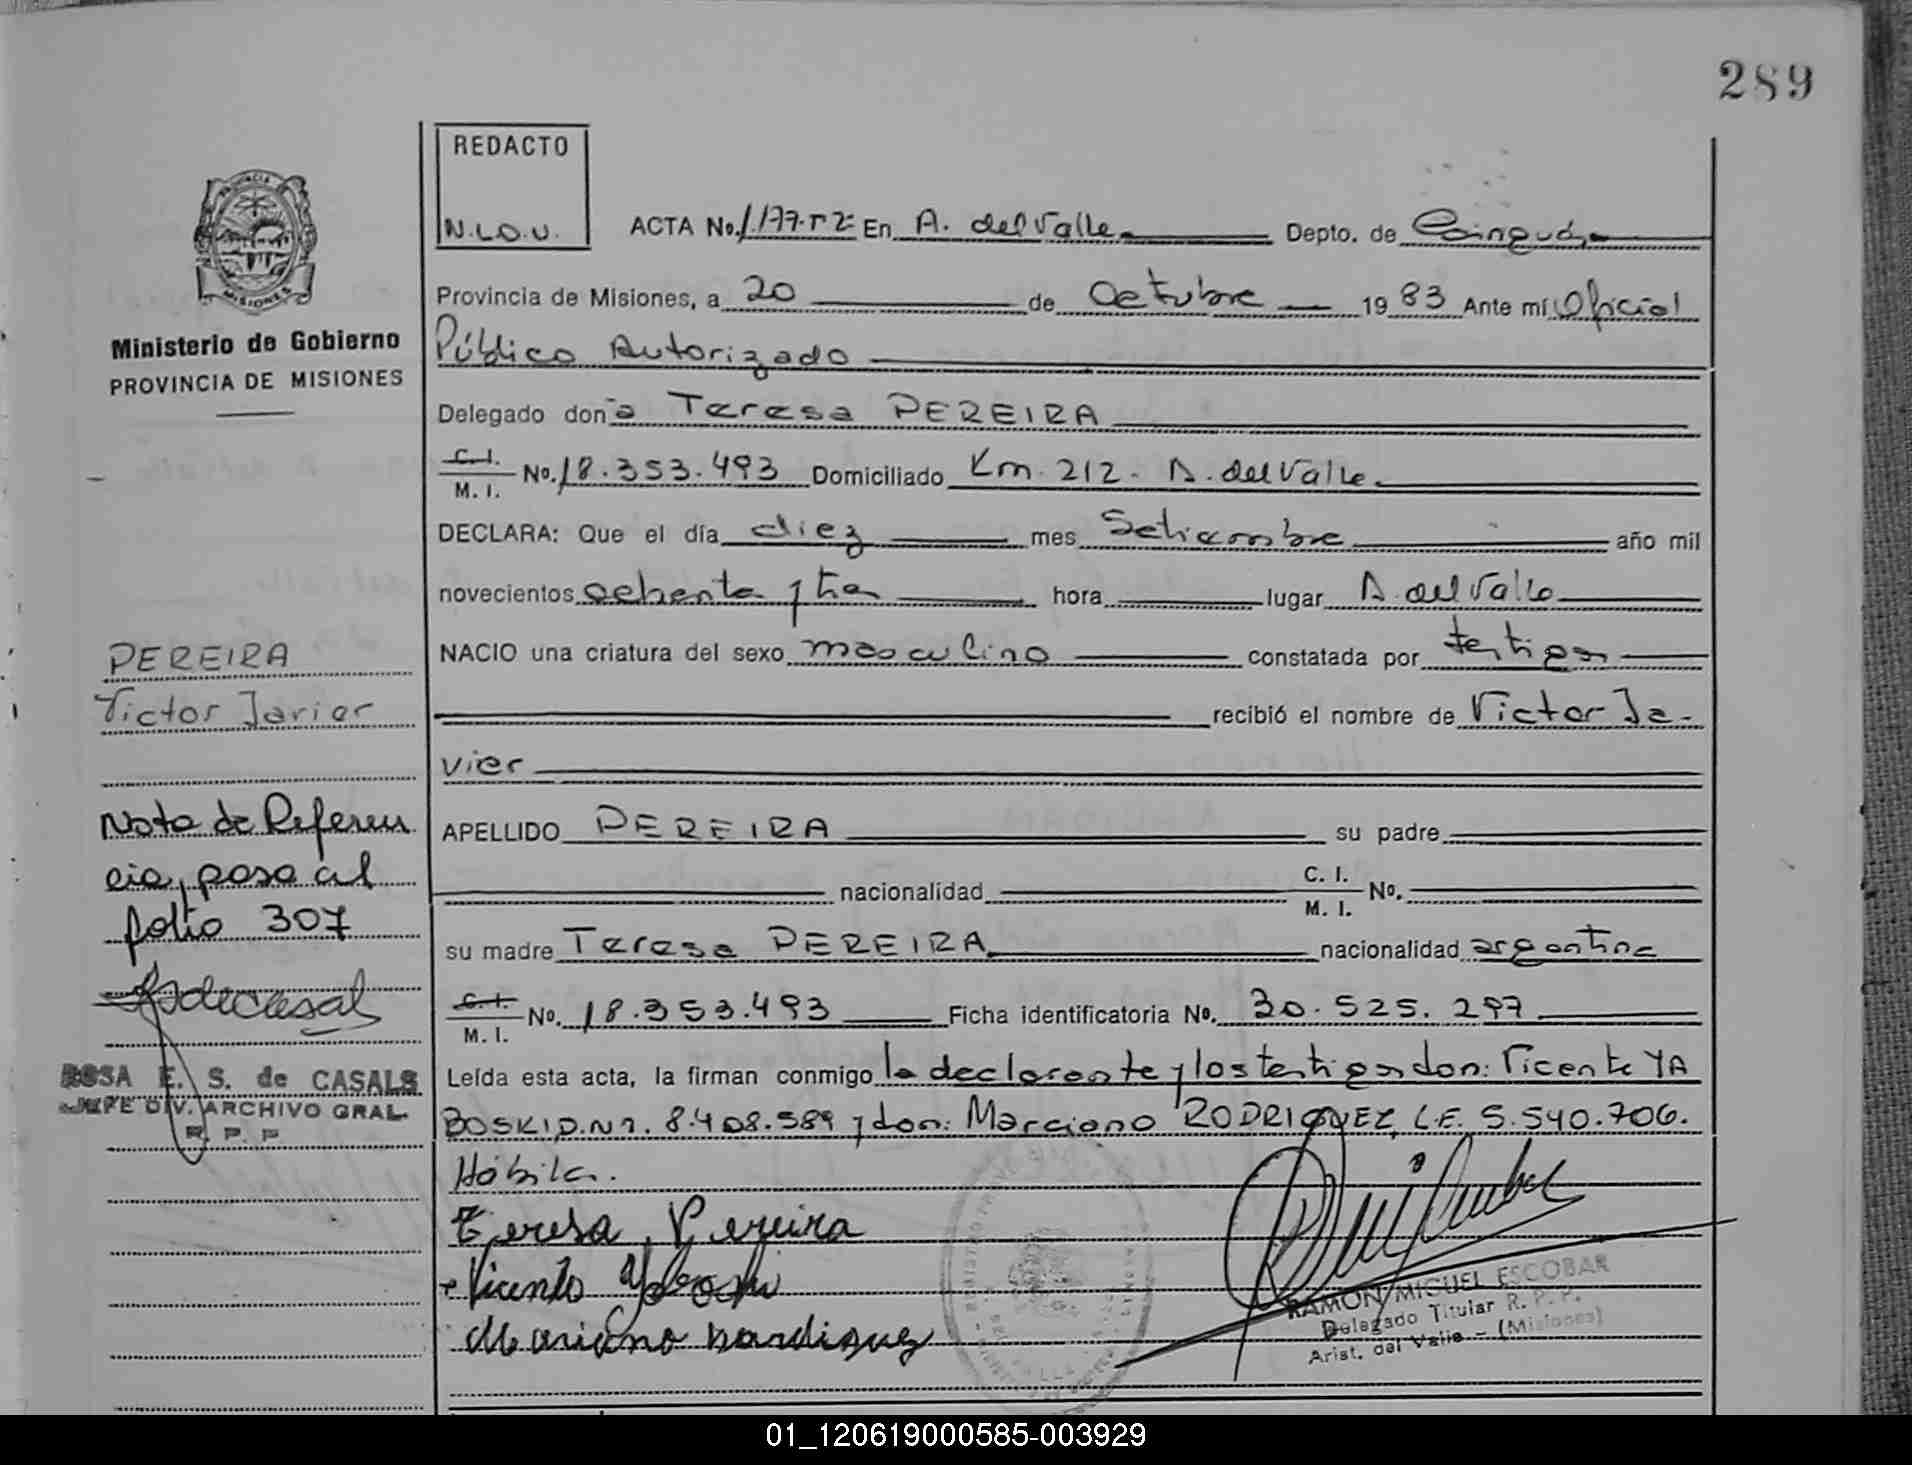 289
REDACTO
N.L.O.V.
ACTA No. 1.177-T2- En A. del Valle Depto. de Cainguás
Provincia de Misiones, a 20 de Octubre 1983 Ante mí Oficial
Público Autorizado
Delegado doña Teresa PEREIRA
C. I.
M. I. No. 18.353.493 Domiciliado Km. 212 - A. del Valle
DECLARA: Que el día diez mes Setiembre año mil
novecientos ochenta y tres hora lugar A. del Valle
NACIO una criatura del sexo masculino constatada por testigos
recibió el nombre de Victor Ja-
vier
APELLIDO PEREIRA su padre
nacionalidad C. I.
M. I. No.
su madre Teresa PEREIRA nacionalidad argentina
C. I.
M. I. No. 18.353.493 Ficha identificatoria No. 30.525.297
Leída esta acta, la firman conmigo la declarante y los testigos don: Vicente YA
BOSKI D.N.I. 8.408.589 y don: Marciano RODRIGUEZ, L.E. 5.540.706.
Hábiles.
Teresa Pereira
Vicente Yaboski
RAMON MIGUEL ESCOBAR
Delegado Titular R. P. P.
Arist. del Valle - (Misiones)
PROVINCIA DE
MISIONES
Ministerio de Gobierno
PROVINCIA DE MISIONES
PEREIRA
Victor Javier
Nota de Referen
cia, pasa al
folio 307
ROSA E. S. de CASALS
JEFE DIV. ARCHIVO GRAL.
R. P. P.
01_120619000585-003929